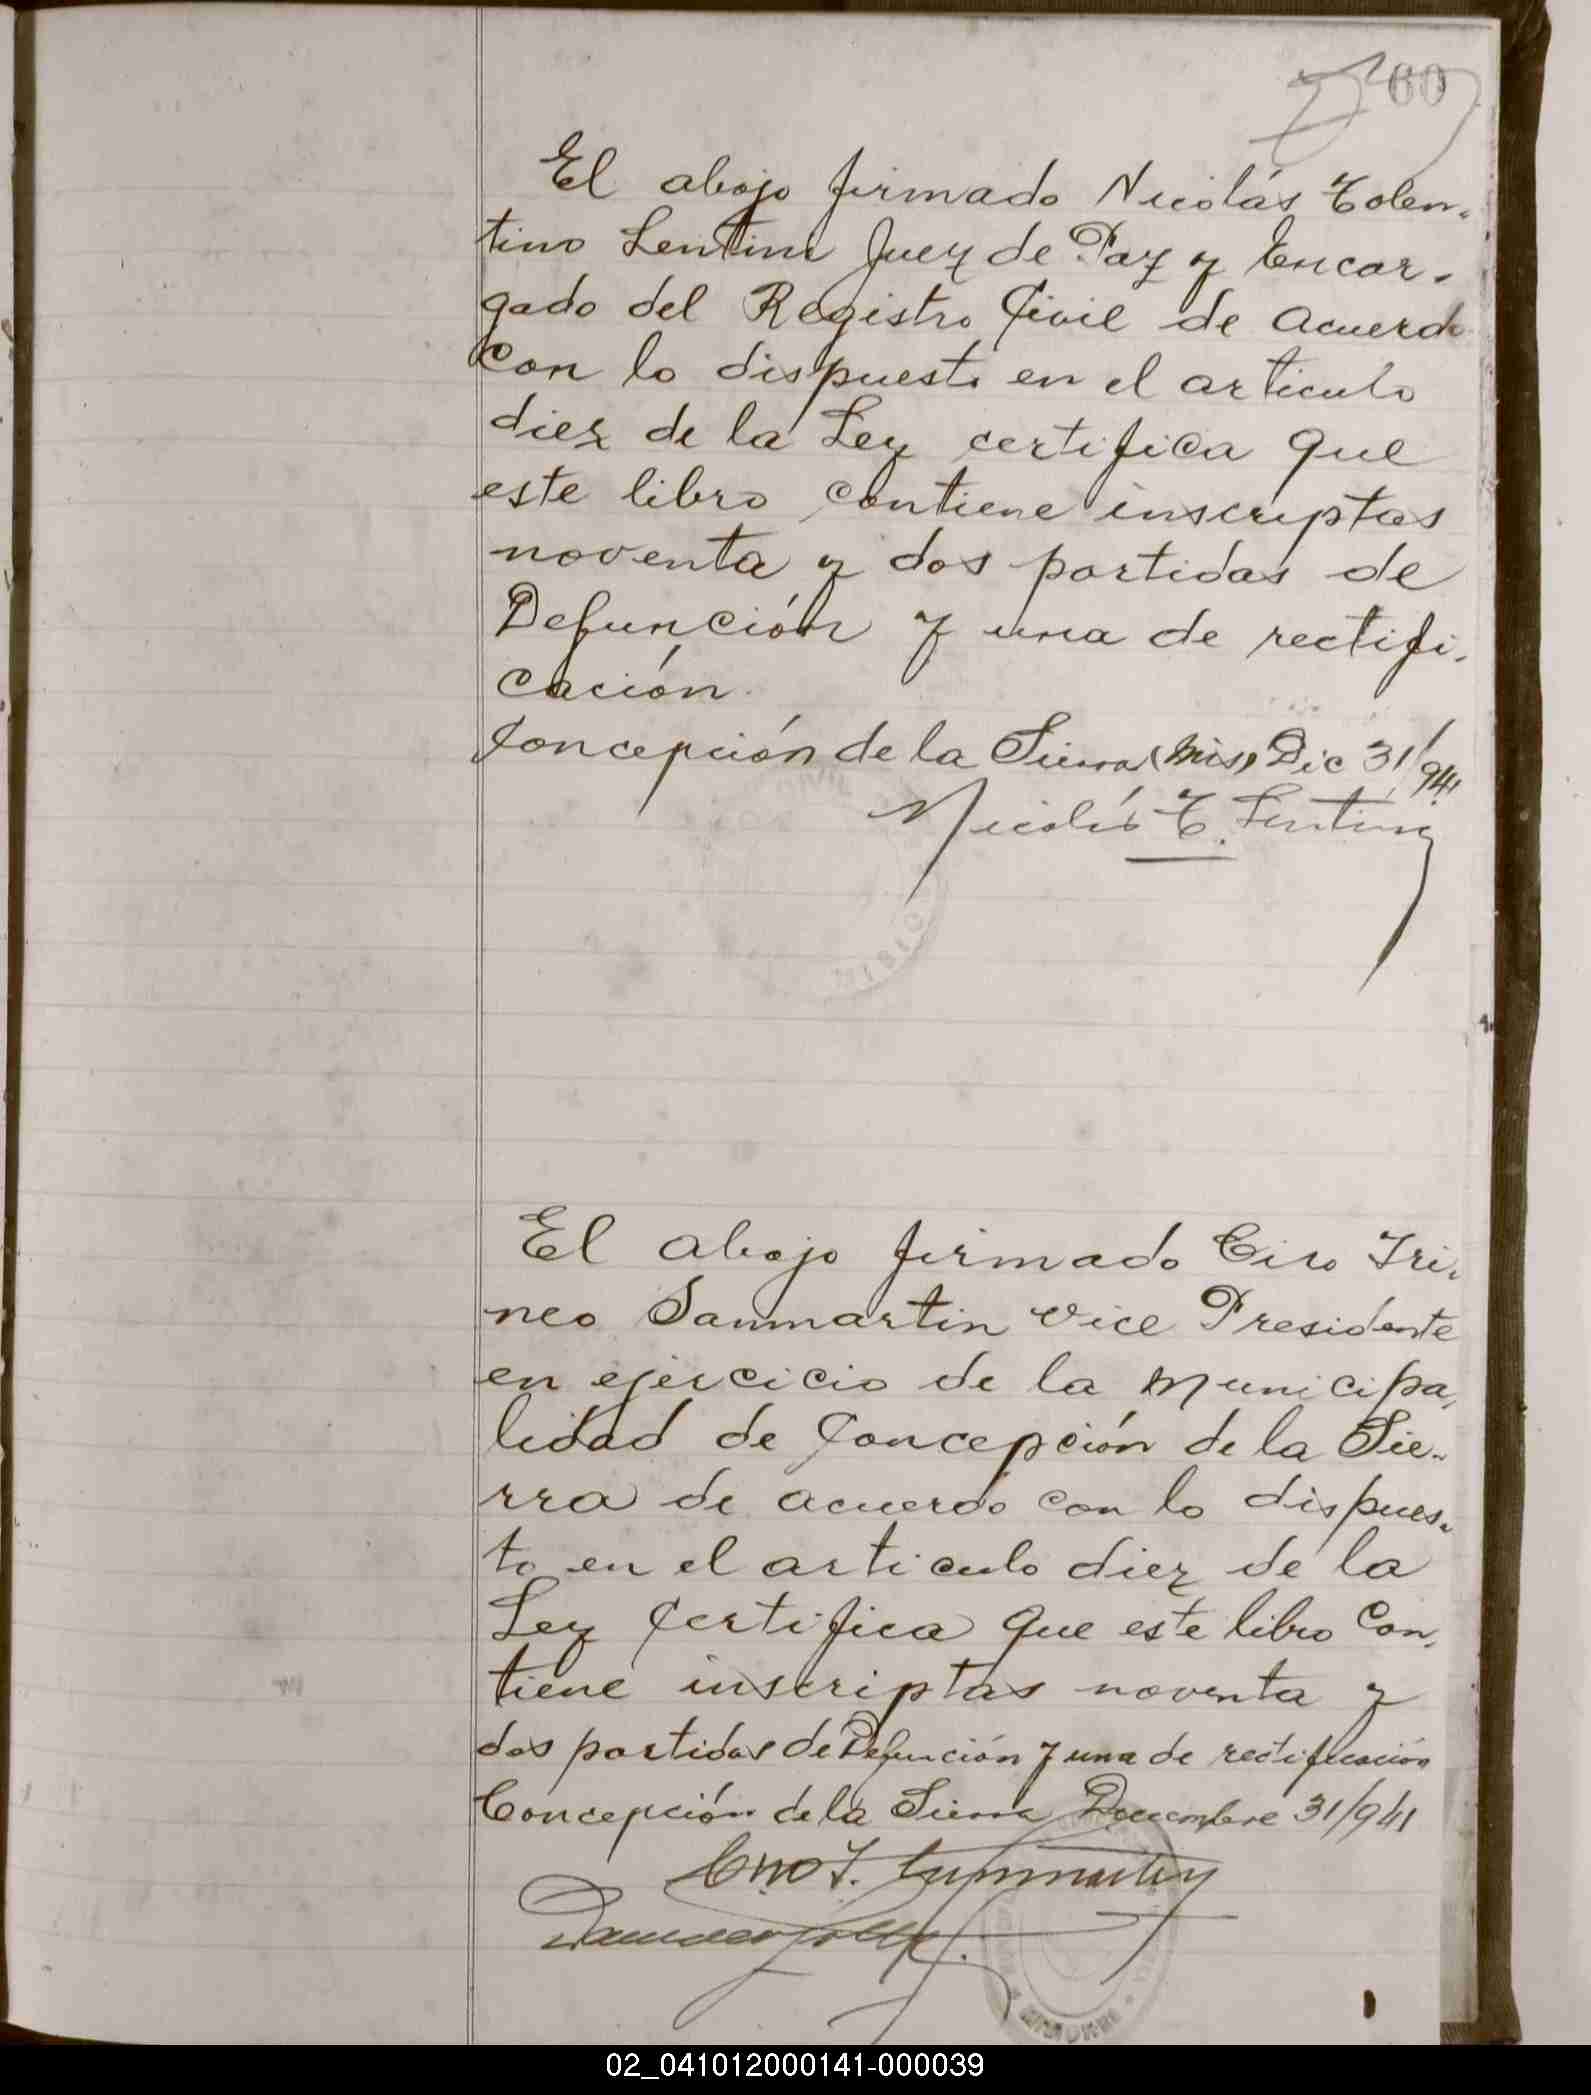 60
El abajo firmado Nicolás Tolen-
tino Lentini Juez de Paz y Encar-
gado del Registro Civil de acuerdo
con lo dispuesto en el articulo
diez de la Ley certifica que
este libro contiene inscriptas
noventa y dos partidas de
Defunción y una de rectifi-
cación.
Concepción de la Sierra (Mis) Dic 31/941
Nicolás T. Lentini
El abajo firmado Ciro Iri-
neo Sanmartin Vice Presidente
en ejercicio de la Municipa-
lidad de Concepción de la Sie-
rra de acuerdo con lo dispues-
to en el articulo diez de la
Ley Certifica que este libro con-
tiene inscriptas noventa y
dos partidas de Defunción y una de rectificación
Concepción de la Sierra Diciembre 31/941
Ciro I. Sanmartin
02_041012000141-000039